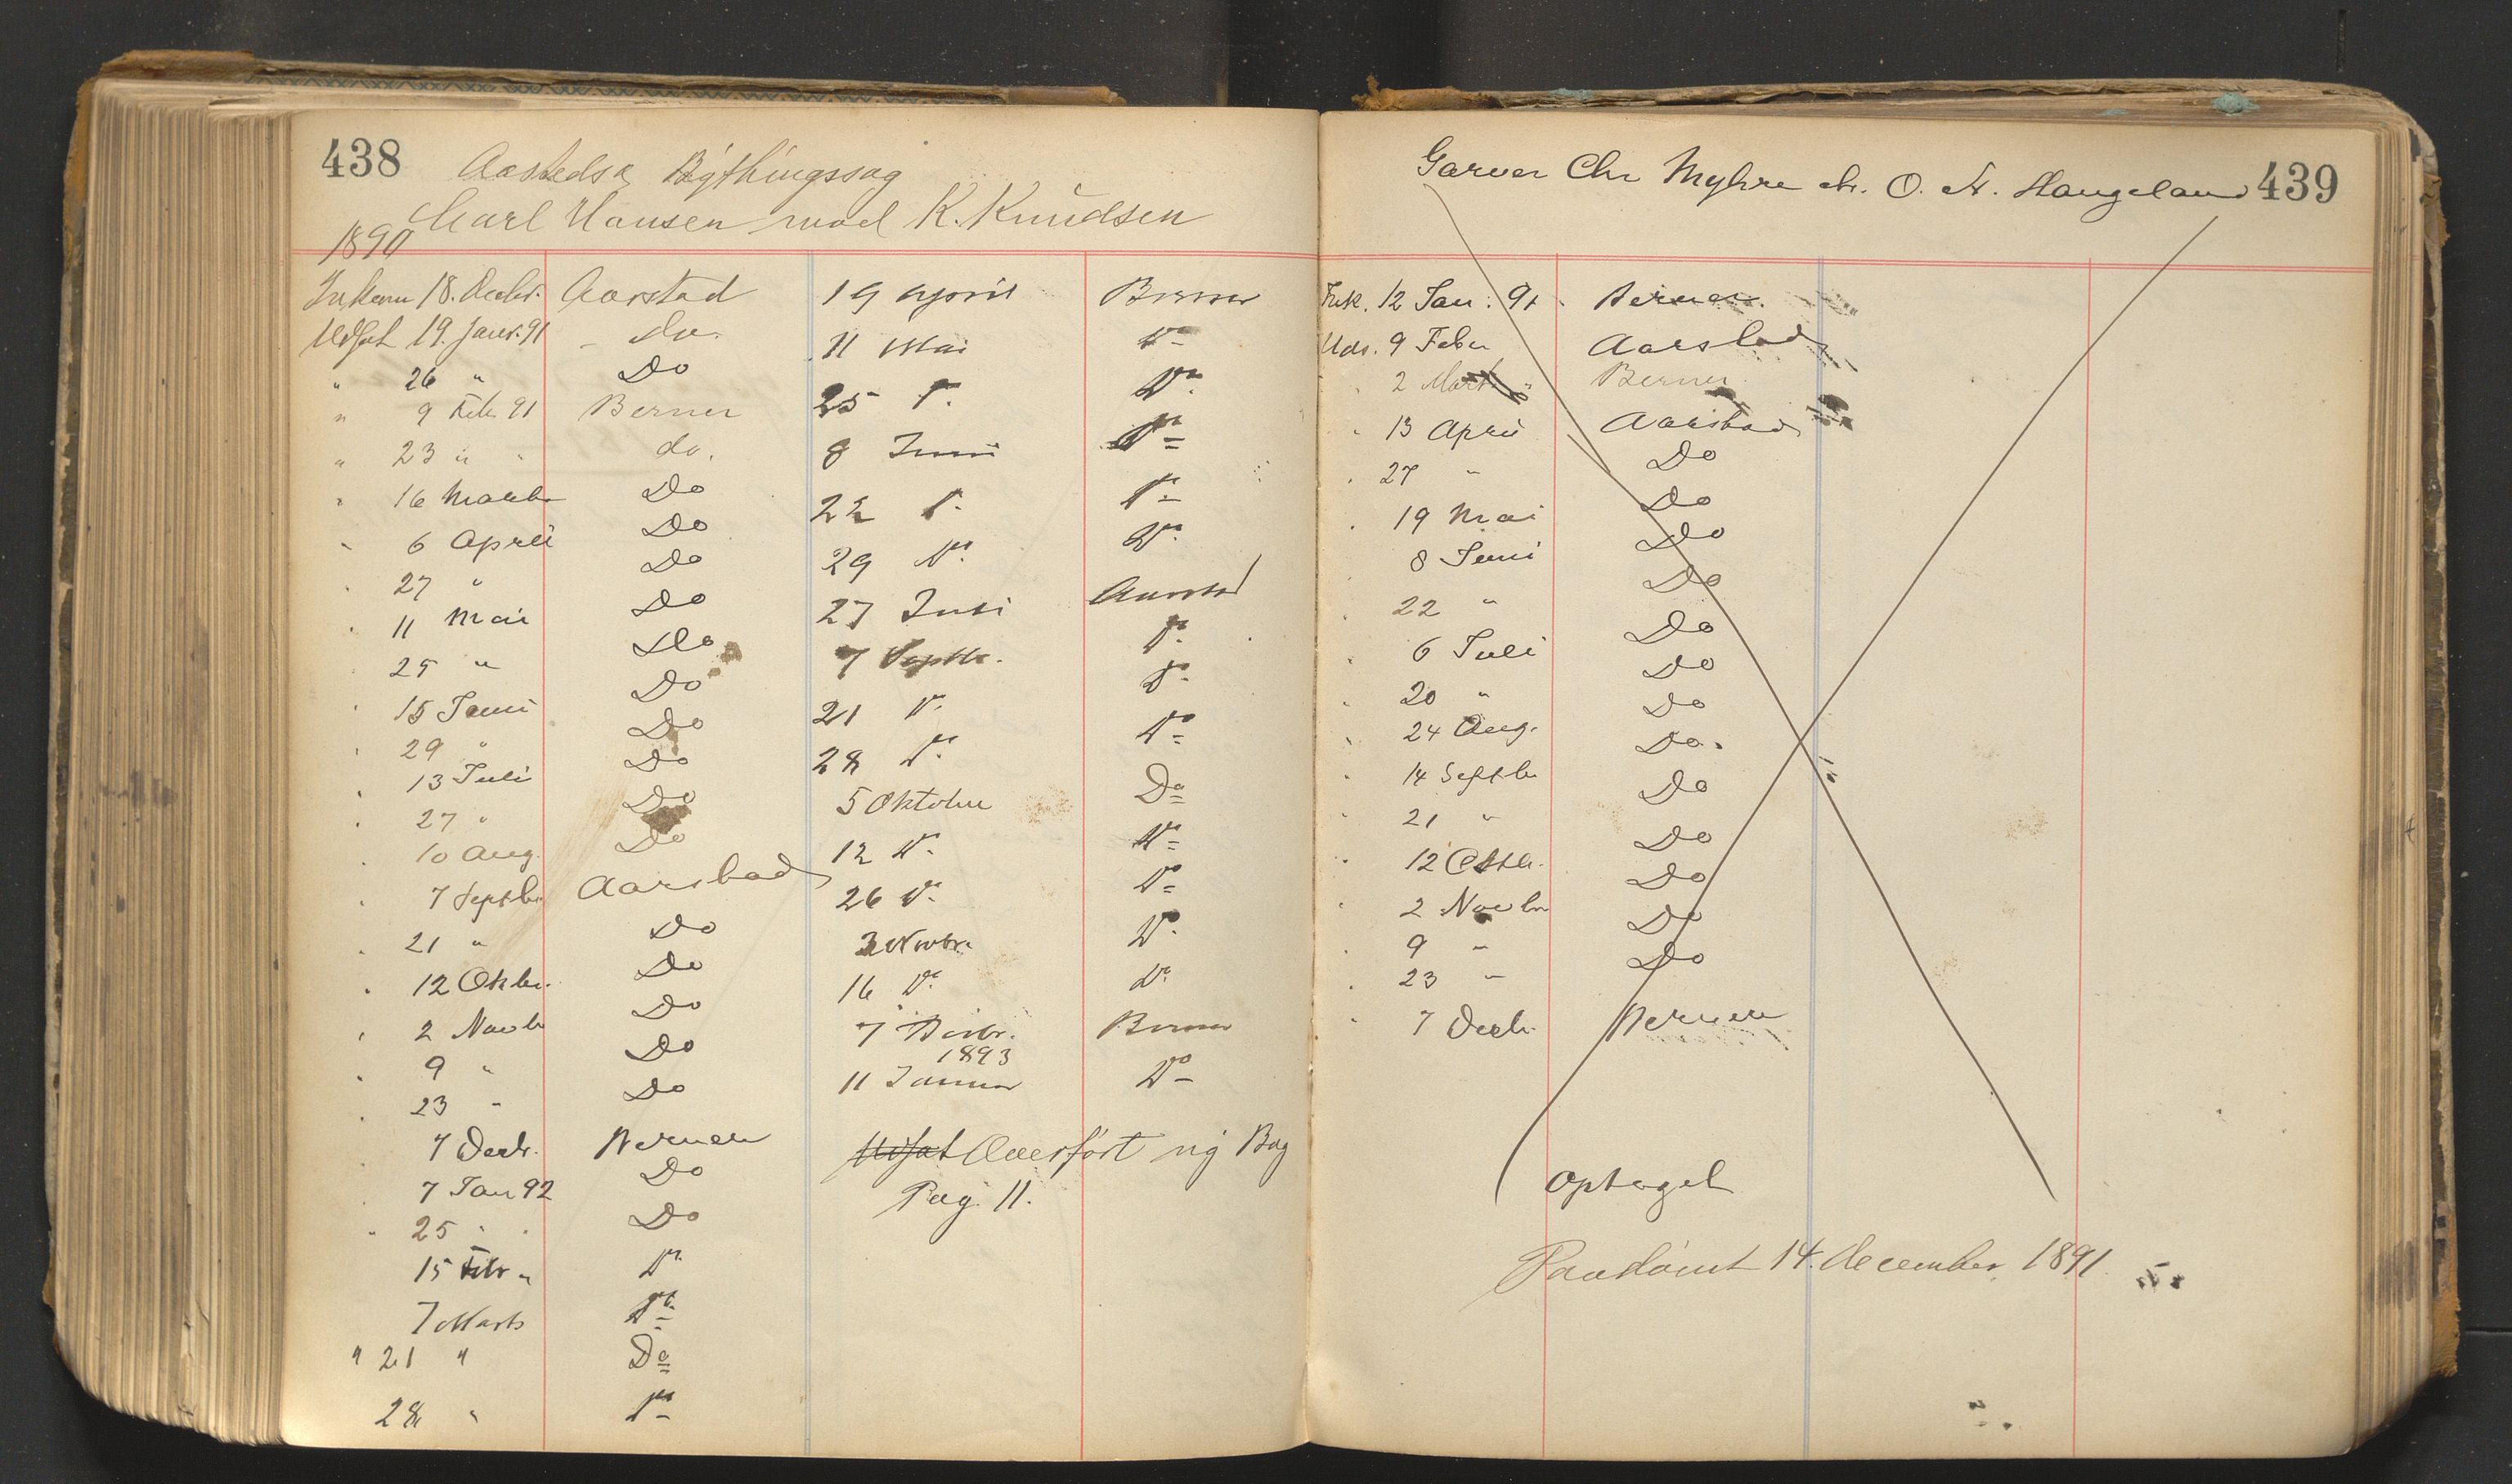 438 Aasteds & Bythingssag
Carl Hansen mod K. Knudsen
1890
Inkom 18. Decbr. Aarstad
Udsat 19. Janr. 91 - do.
" 26 " Do
" 9 Feb. 91 Berner
" 23 " " do.
" 16 Martz Do
" 6 April Do
" 27 " Do
" 11 Mai Do
25 " Do
" 15 Juni Do
" 29 " Do
" 13 Juli Do
" 27 " Do
" 10 Aug. Do
" 7 Septbr Aarstad
" 21 " Do
" 12 Oktbr. Do
" 2 Novbr Do
" 9 " Do
" 23 " Do
7 Decbr. Berner
7 Jan 92 Do
" 25 " " Do
15 Febr " Do
7 Marts Do
" 21 " Do
28 " Do
19 April Berner
11 Mai Do
25 Do. Do.
8 Juni Do
22 Do. Do
29 Do. Do.
27 Juli Aarstad
7 Septbr. Do.
21 Do. Do.
28 Do. Do
5 Oktober Do
12 Do. Do
26 Do. Do
3 Novbr. Do.
16 Do. Do.
7 Decbr. Berner
1893
11 Januar Do
Udsat Overført ny Bog
Pag. 11.
Garver Chr Myhre ctr. O. N. Haugeland 439
Ink. 12 Jan. 91. Berner.
Uds. 9 Febr Aarstad
" 2 Marts " Berner
" 13 April Aarstad
" 27 " Do
" 19 Mai Do
8 Juni Do
" 22 " Do
" 6 Juli Do
" 20 " Do
" 24 Aug. Do
" 14 Septbr Do.
" 21 " Do
" 12 Oktbr. Do
" 2 Novbr Do
" 9 " Do
" 23 " Do
" 7 Decbr. Berner
Optaget
Paadømt 14. december 1891